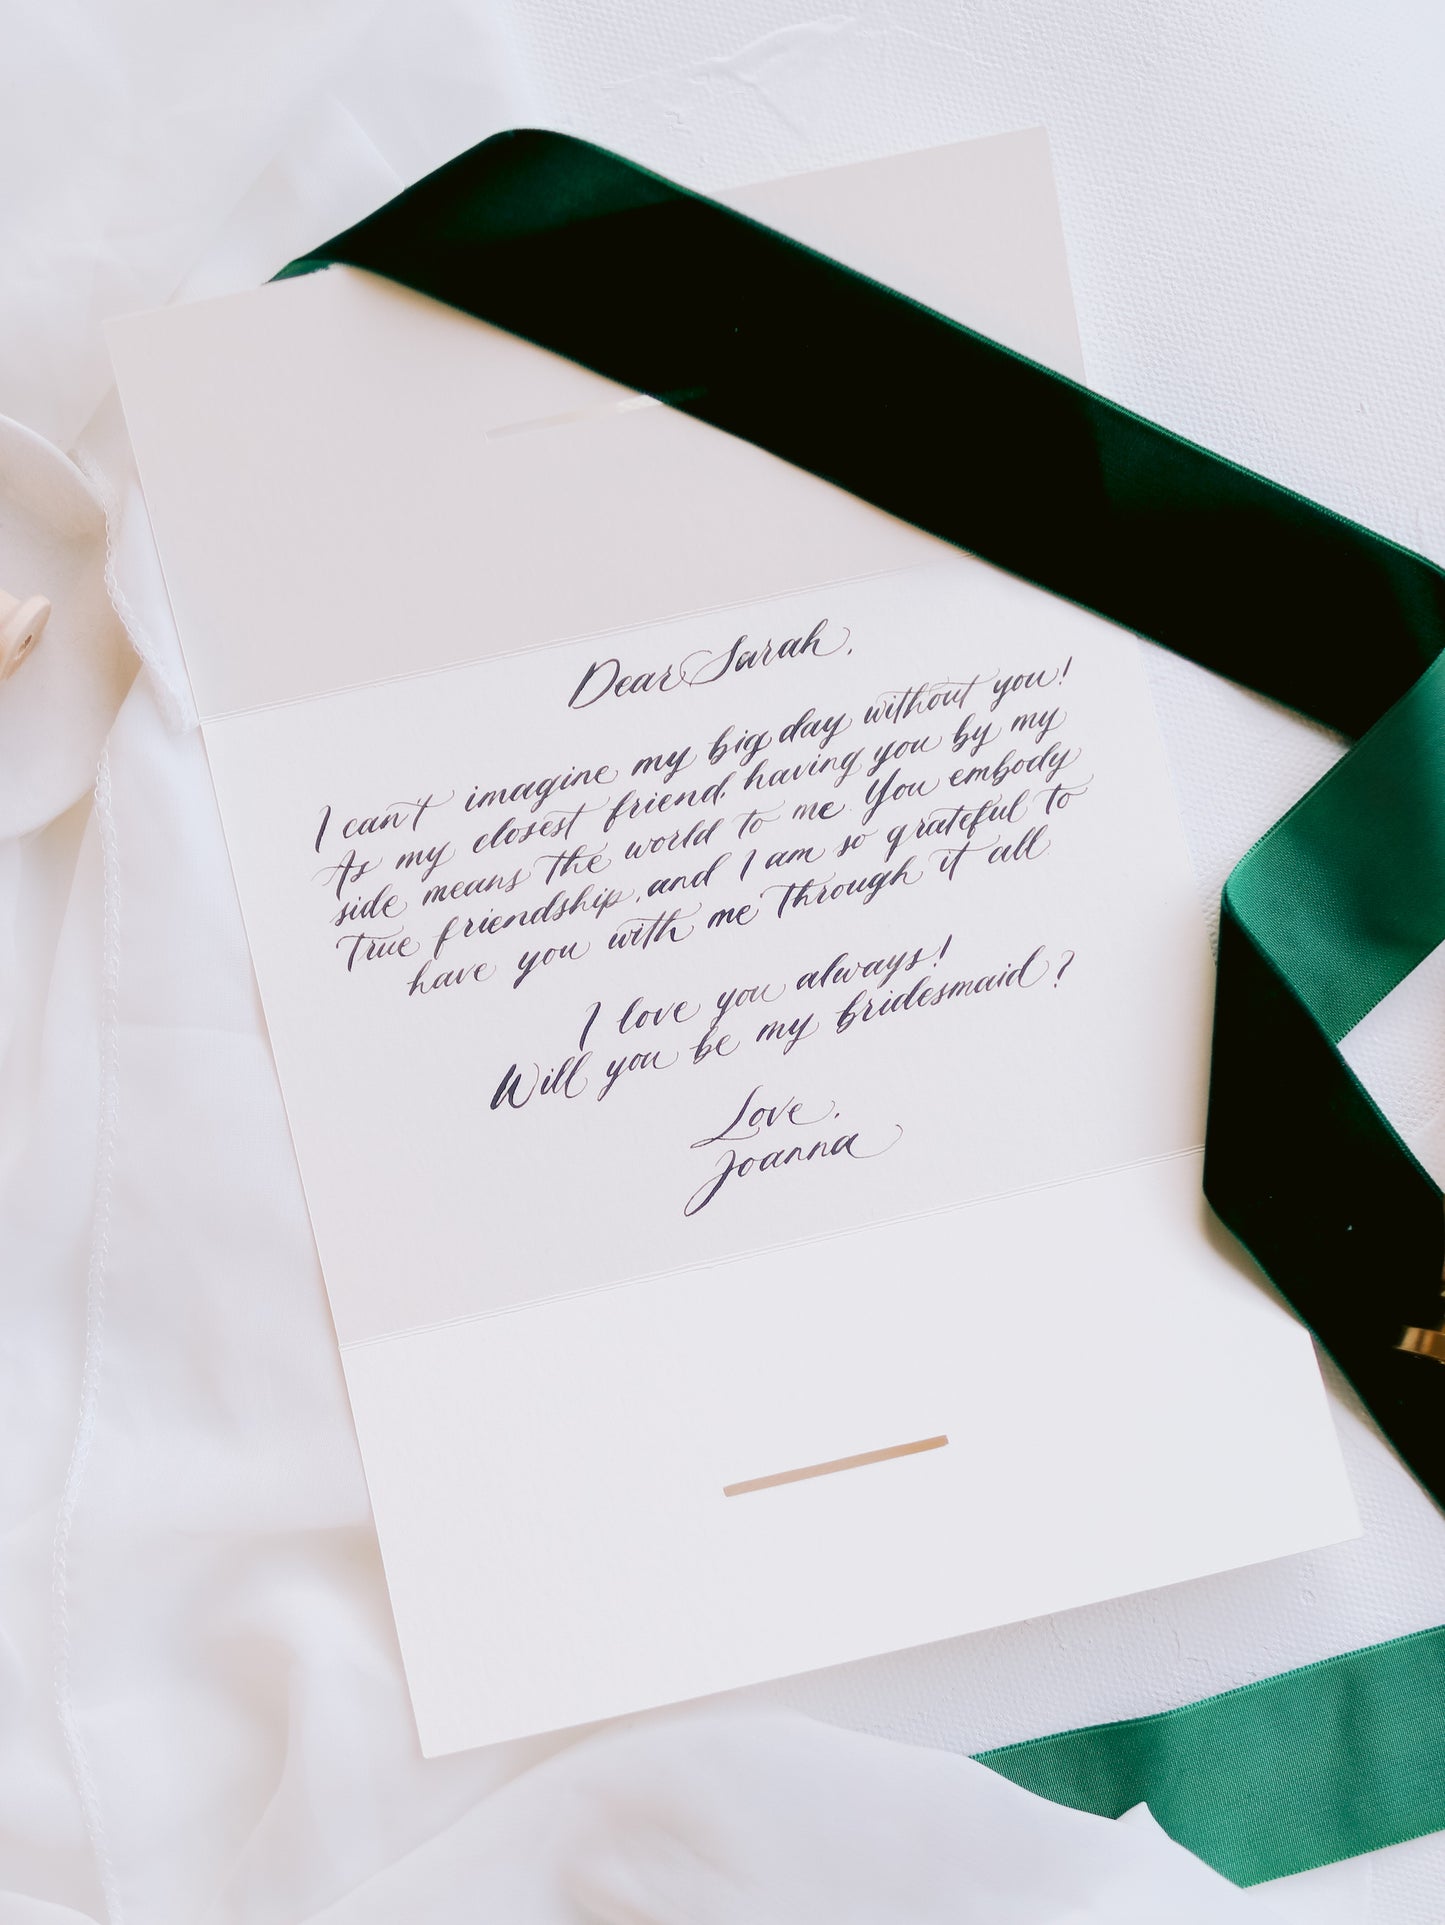 Dear Sarah,
I can't imagine my big day without you!
As my closest friend, having you by my
side means the world to me. You embody
true friendship, and I am so grateful to
have you with me through it all.
I love you always!
Will you be my bridesmaid?
Love,
Joanna